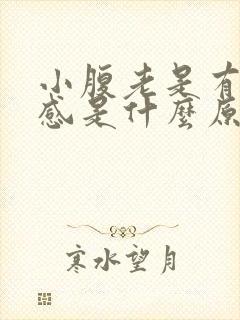 小腹老是有
感是什麼原
寒水望月